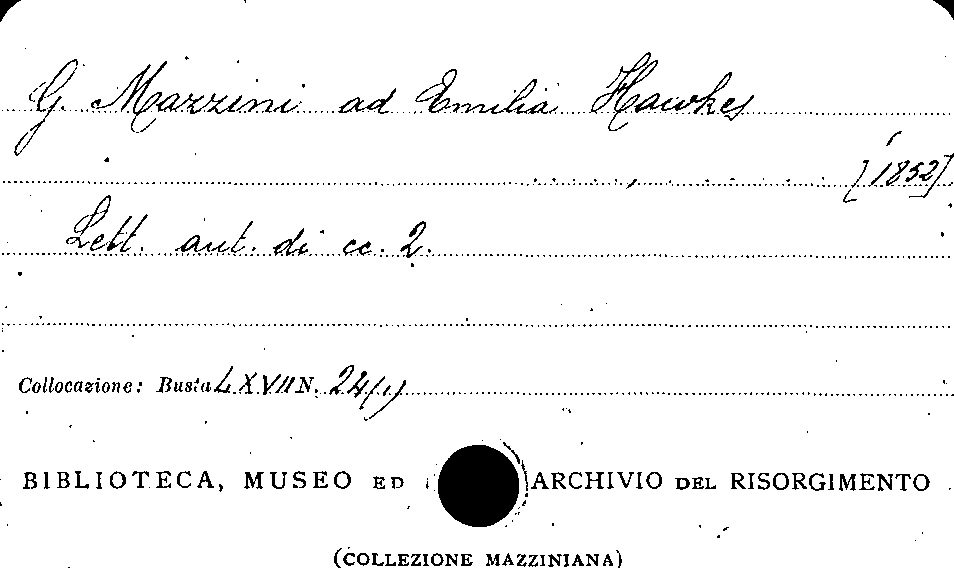 G. Mazzini ad Emilia Hawkes
[1852]
Lett. aut. di cc. 2.
Collocazione: Busta LXVII N. 24(1)
BIBLIOTECA, MUSEO ED ARCHIVIO DEL RISORGIMENTO
(COLLEZIONE MAZZINIANA)